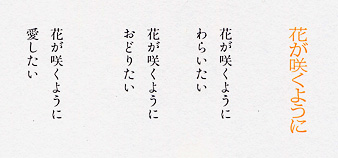 花が咲くように
花が咲くように
わらいたい
花が咲くように
おどりたい
花が咲くように
愛したい